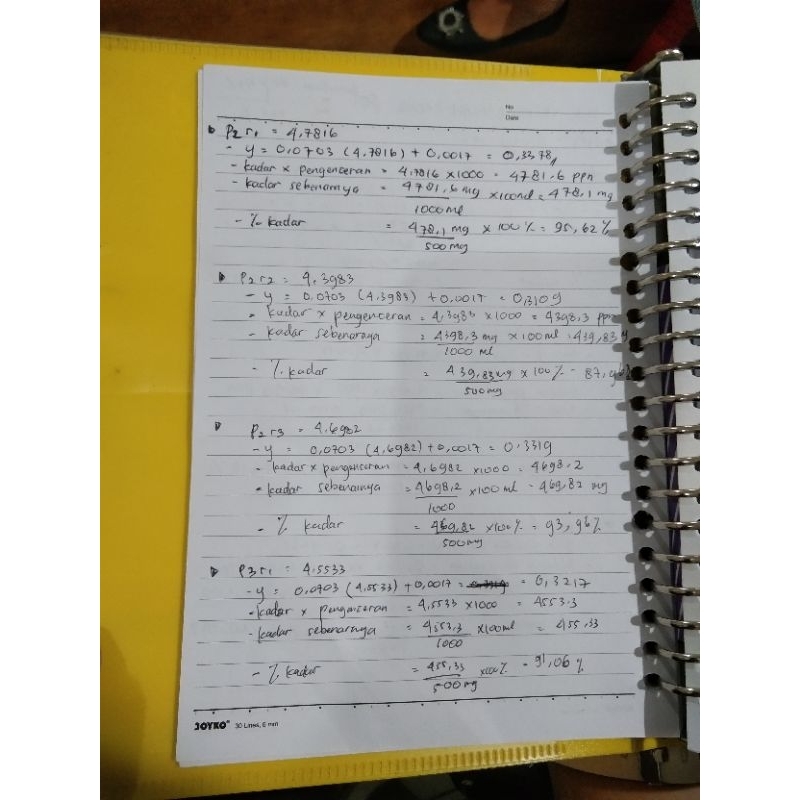 No
Date
P2 r1 = 4,7816
- y = 0,0703 (4,7816) + 0,0017 = 0,3378
- kadar x pengenceran = 4,7816 x1000 = 4781,6 ppn
- kadar sebenarnya = 4781,6 mg x100ml = 478,1 mg
1000 ml
- % kadar = 478,1 mg x 100 % = 95,62 %
500 mg
P2 r2 = 4,3983
- y = 0,0703 (4,3983) + 0,0017 = 0,3109
- kadar x pengenceran = 4,3983 x1000 = 4398,3 ppn
- kadar sebenarnya = 4398,3 mg x 100 ml = 439,83
1000 ml
- % kadar = 439,83 mg x 100 % = 87,96
500 mg
P2 r3 = 4,6982
- y = 0,0703 (4,6982) + 0,0017 = 0,3319
- kadar x pengenceran = 4,6982 x1000 = 4698,2
- kadar sebenarnya = 4698,2 x100 ml = 469,82 mg
1000
- % kadar = 469,82 x100 % = 93,96 %
500 mg
P3 r1 = 4,5533
- y = 0,0703 (4,5533) + 0,0017 = 0,3217
- kadar x pengenceran = 4,5533 x1000 = 4553,3
- kadar sebenarnya = 4553,3 x100 ml = 455,33
1000
- % kadar = 455,33 x100 % = 91,06 %
500 mg
JOYKO 30 Lines, 6 mm